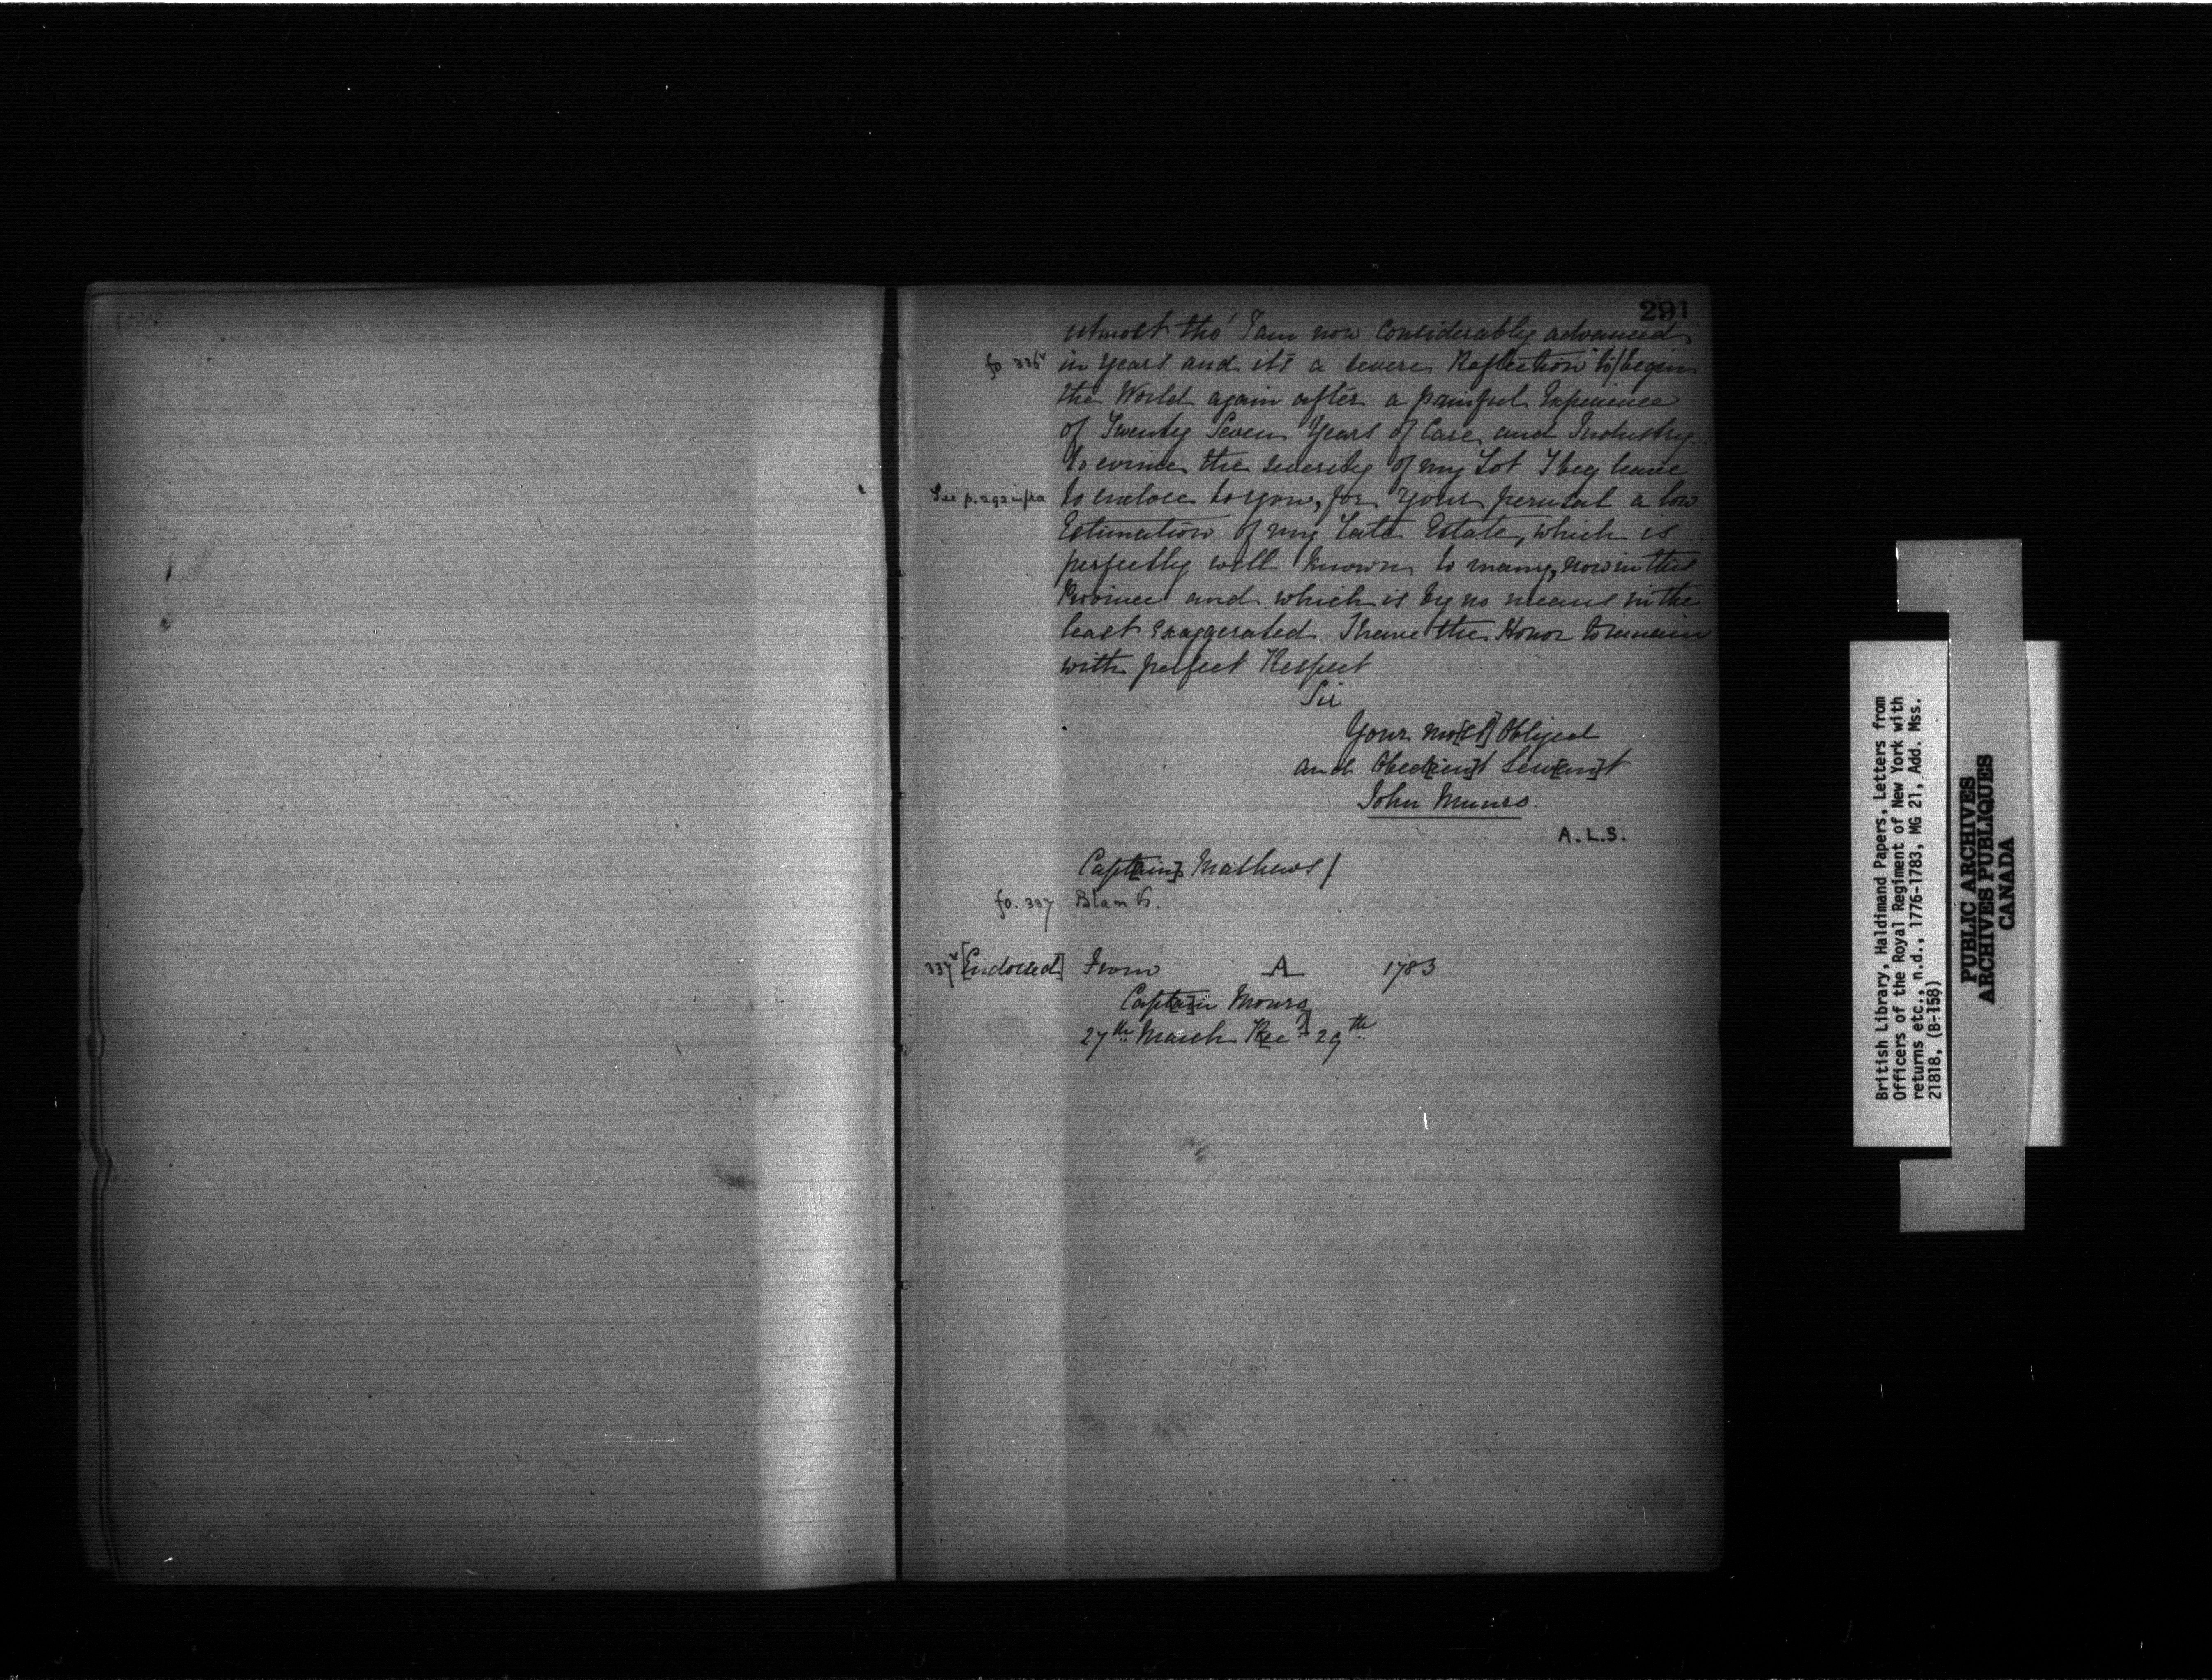 291
utmost tho' I am now Considerably advanced
fo 336v in Years and it's a severe Reflection to/begin
the World again after a painful Experience
of Twenty Seven Years of Care and Industry.
To evince the severity of my Lot I beg leave
See p. 292 infra to enclose to you, for Your perusal a low
Estimation of my Late Estate, which is
perfectly well Known to many, now in this
Province and which is by no means in the
least Exaggerated I have the Honor to remain
with perfect Respect
Sir
Your mo[st] Obliged
and Obed[ien]t Serv[an]t
John Munro.
A.L.S.
Capt[ain] Mathews/
fo. 337 Blank.
337v [Endorsed] From A 1783
Capt[ai]n Monro
27th March Rec[d] 29th
British Library, Haldimand Papers, Letters from
Officers of the Royal Regiment of New York with
returns etc., n.d., 1776-1783, MG 21, Add. Mss.
21818, (B-158)
PUBLIC ARCHIVES
ARCHIVES PUBLIQUES
CANADA